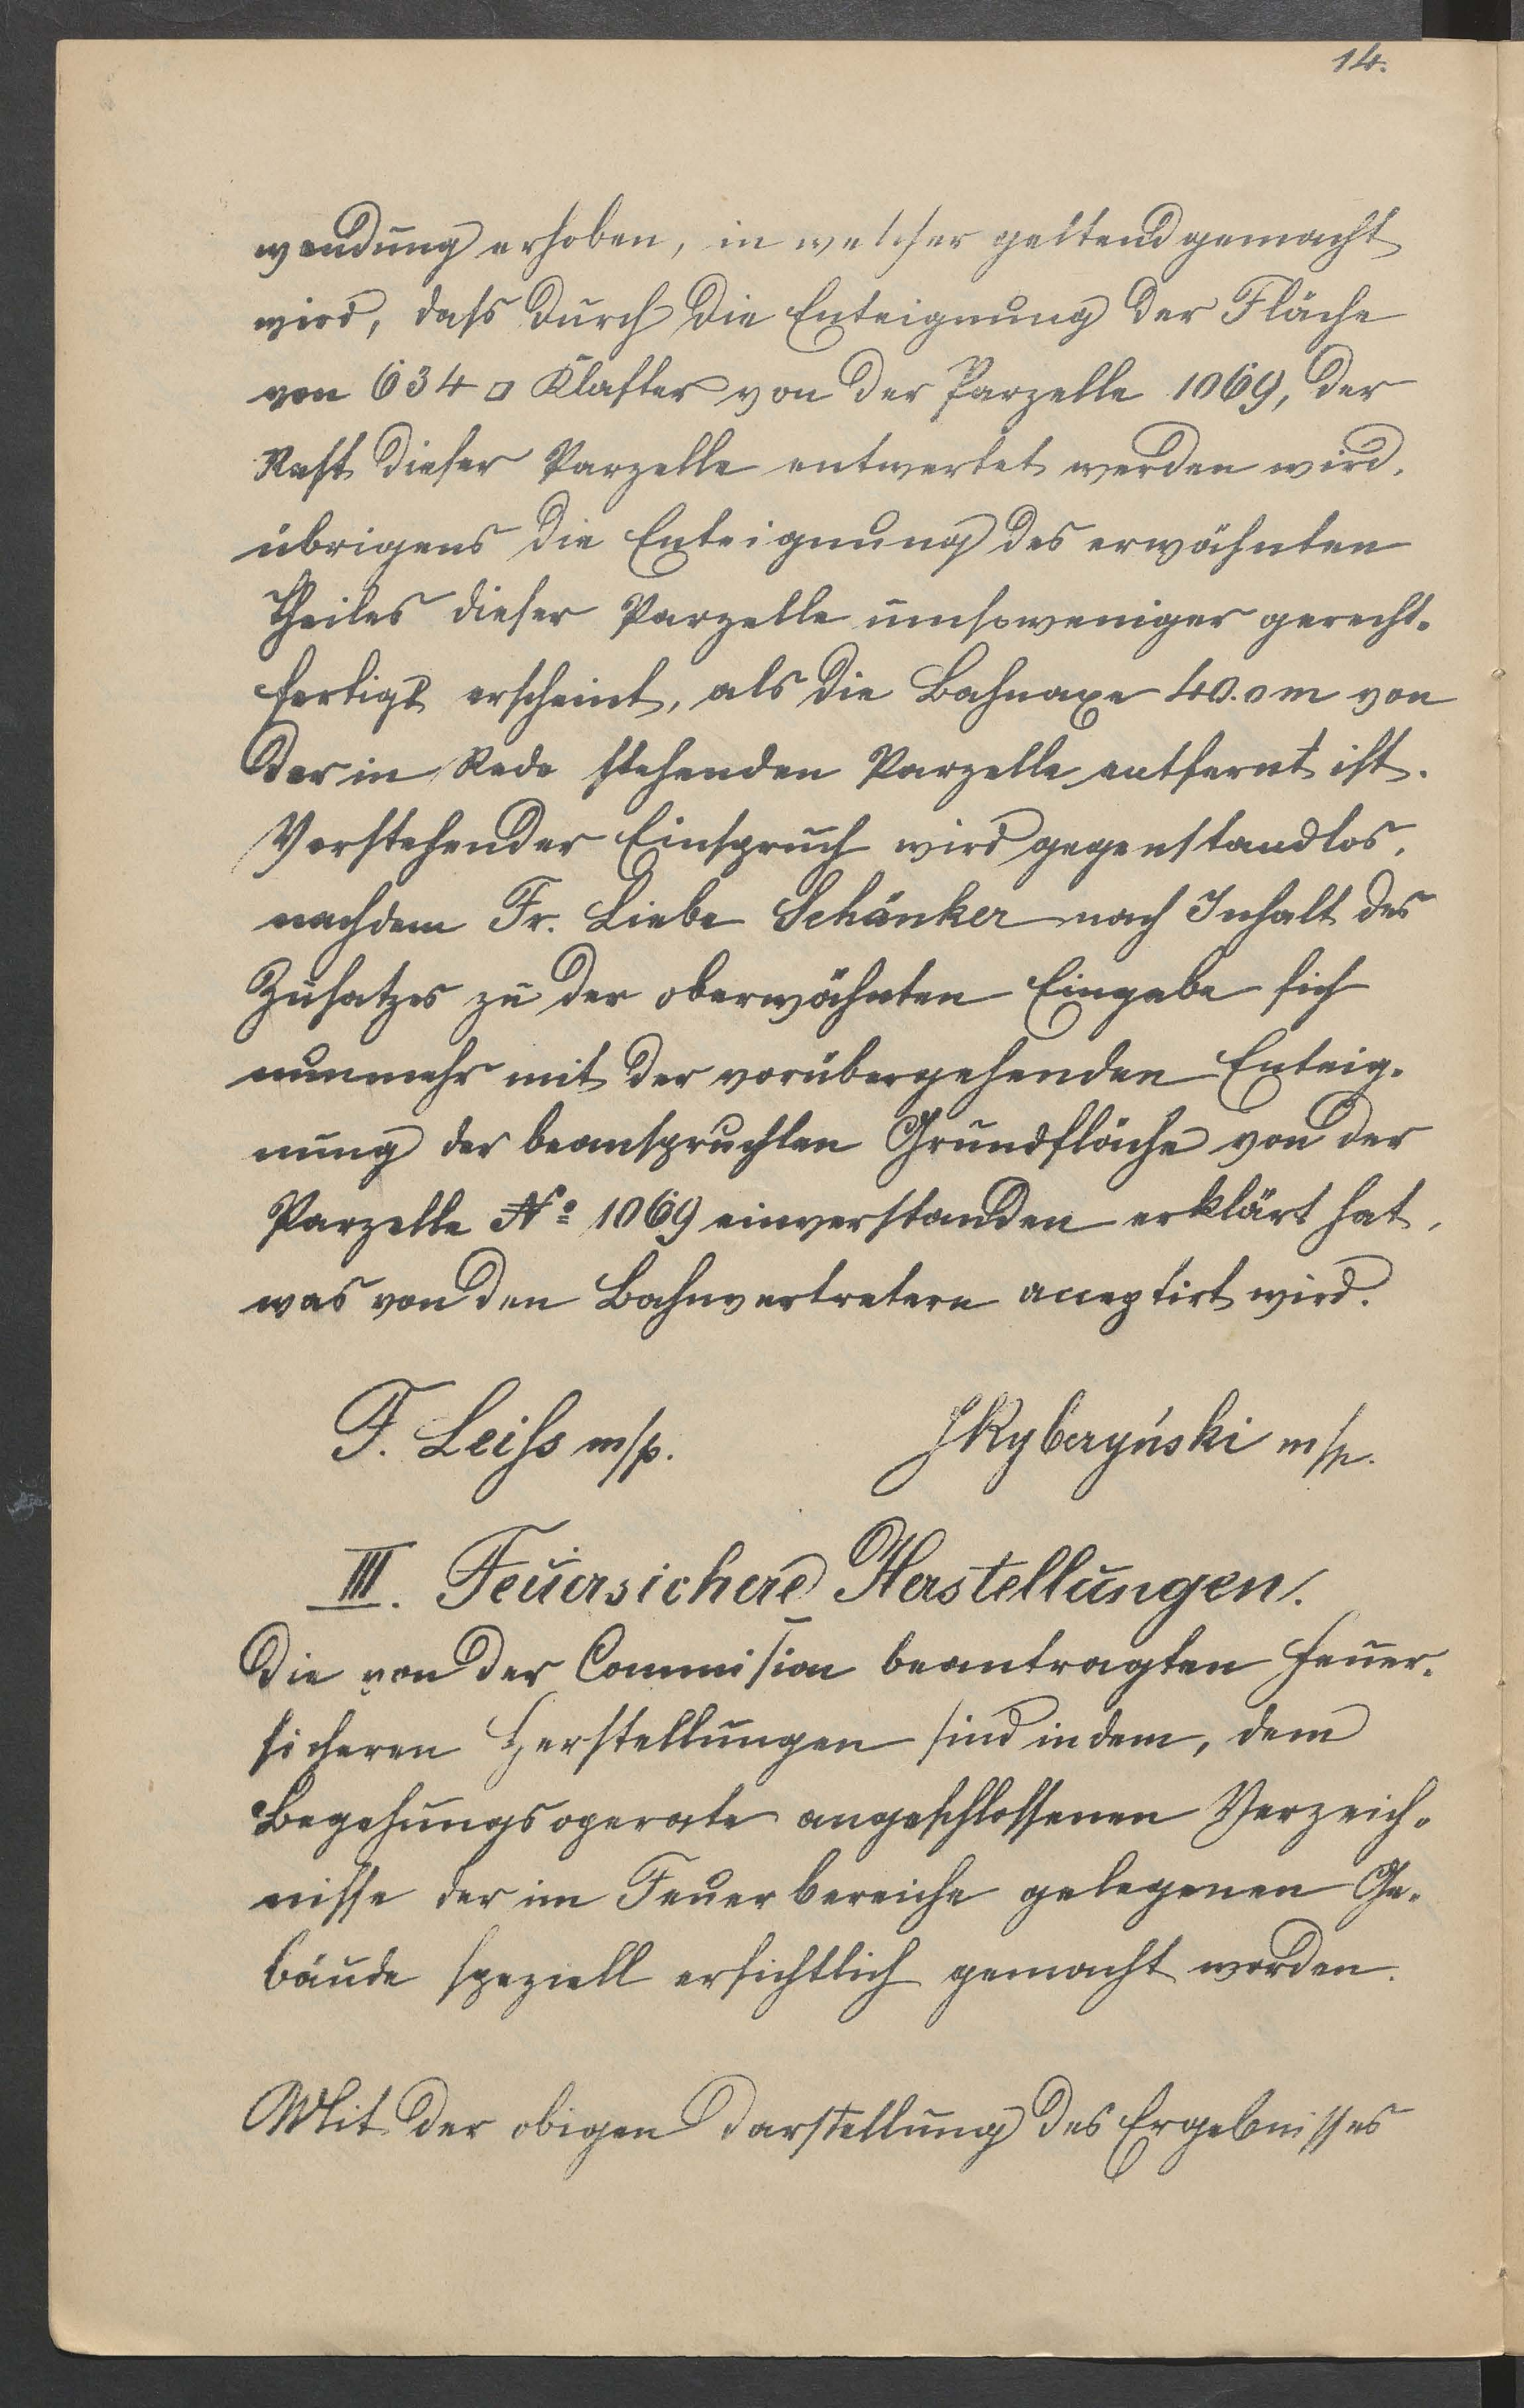 14.
wendung erhoben, in welcher geltend gemacht
wird, dass durch die Enteignung der Fläche
von 634 □ Klafter von der Parzelle 1069, der
Rest dieser Parzelle entwertet werden wird,
übrigens die Enteignung des erwähnten
Theiles dieser Parzelle umsoweniger gerecht-
fertigt erscheint, als die Bahnaxe 40.0 m von
der in Rede stehenden Parzelle entfernt ist.
Vorstehender Einspruch wird gegenstandlos,
nachdem Fr. Liebe Schänker nach Inhalt des
Zusatzes zu der oberwähnten Eingabe sich
nunmehr mit der vorübergehenden Enteig-
nung der beanspruchten Grundfläche von der
Parzelle No 1069 einverstanden erklärt hat,
was von den Bahnvertretern acceptirt wird.
F. Leiss m/p. m/p.
III. Feuersichere Herstellungen.
Die von der Commission beantragten feuer-
sicheren Herstellungen sind in dem, dem
Begehungsoperate angeschlossenen Verzeich-
nisse der im Feuerbereiche gelegenen Ge-
bäude speziell ersichtlich gemacht worden.
Mit der obigen Darstellung des Ergebnisses